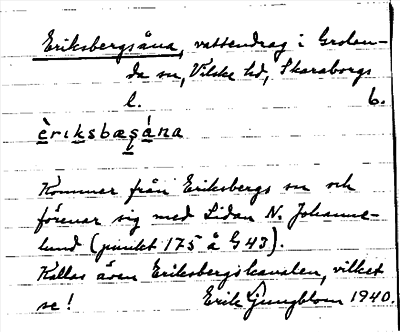 Eriksbergsåna, vattendrag i Grolan-
da sn, Vilske hd, Skaraborgs
l. 6.
èriksbæsána
Kommer från Eriksbergs sn och
förenar sig med Lidan N. Johanne-
lund (punkt 175 å G 43).
Kallas även Eriksbergskanalen, vilket
se! Erik Ljungblom 1940.